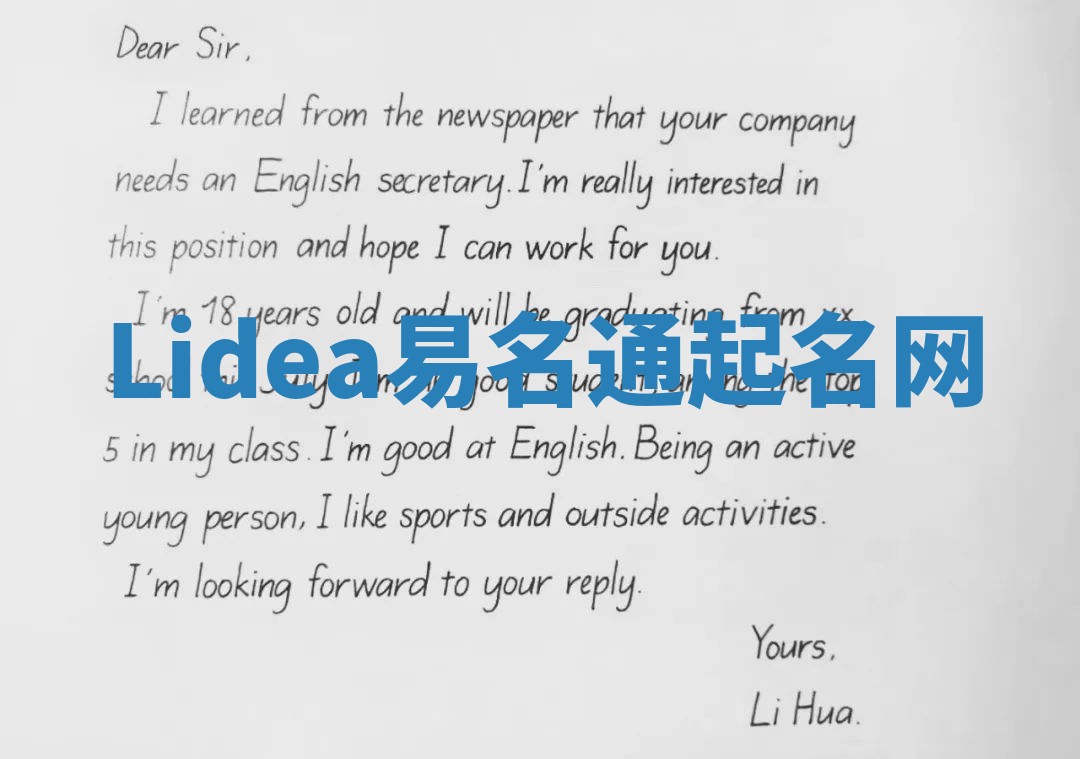 Dear Sir,
I learned from the newspaper that your company
needs an English secretary. I'm really interested in
this position and hope I can work for you.
I'm 18 years old and will be graduating from xx
Lidea易名通起名网
school this July. I'm a good student, among the top
5 in my class. I'm good at English. Being an active
young person, I like sports and outside activities.
I'm looking forward to your reply.
Yours,
Li Hua.